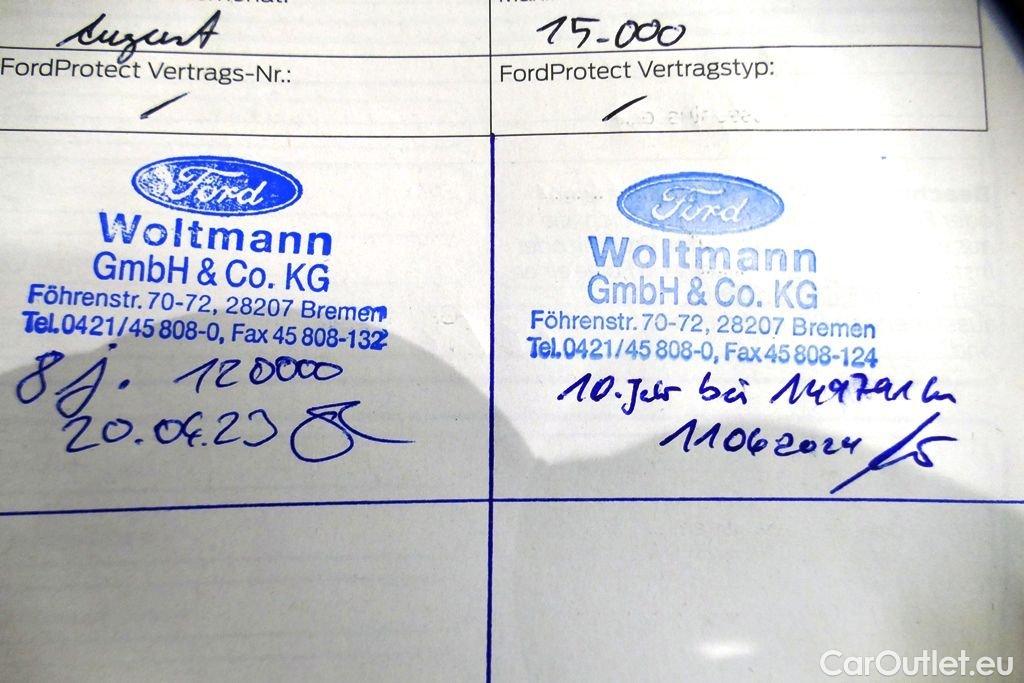 August
15.000
FordProtect Vertrags-Nr.:
FordProtect Vertragstyp:
/
/
Ford
Woltmann
GmbH & Co. KG
Föhrenstr. 70-72, 28207 Bremen
Tel.0421/45 808-0, Fax 45 808-132
8 J. 120000
20.04.23
Ford
Woltmann
GmbH & Co. KG
Föhrenstr. 70-72, 28207 Bremen
Tel.0421/45 808-0, Fax 45 808-124
10. Jahr bei 149791 km
11062024
CarOutlet.eu